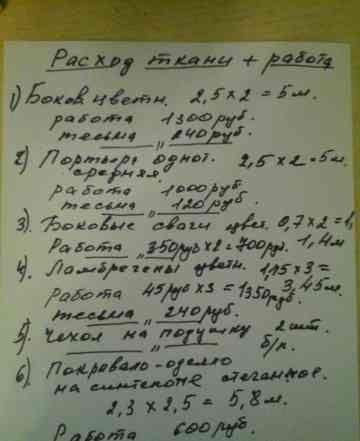 Расход ткани + работа
1) Боков. цветн. 2,5 х 2 = 5 м.
работа 1300 руб.
тесьма „ 240 руб.
2) Портьера однот. 2,5 х 2 = 5 м.
средняя
работа 1000 руб.
тесьма „ 120 руб.
3) Боковые сваги цвет. 0,7 х 2 = 1,
Работа „ 350 руб х 2 = 700 руб. 1,4 м
4) Ламбрегены цветн. 1,15 х 3 =
Работа 45 руб х 3 = 1350 руб. 3,45 м.
тесьма „ 240 руб.
5) Чехол на подушку 2 шт.
„ б/п.
6) Покравало-одеяло
на синтепоне стеганное.
2,3 х 2,5 = 5,8 м.
Работа 600 руб.